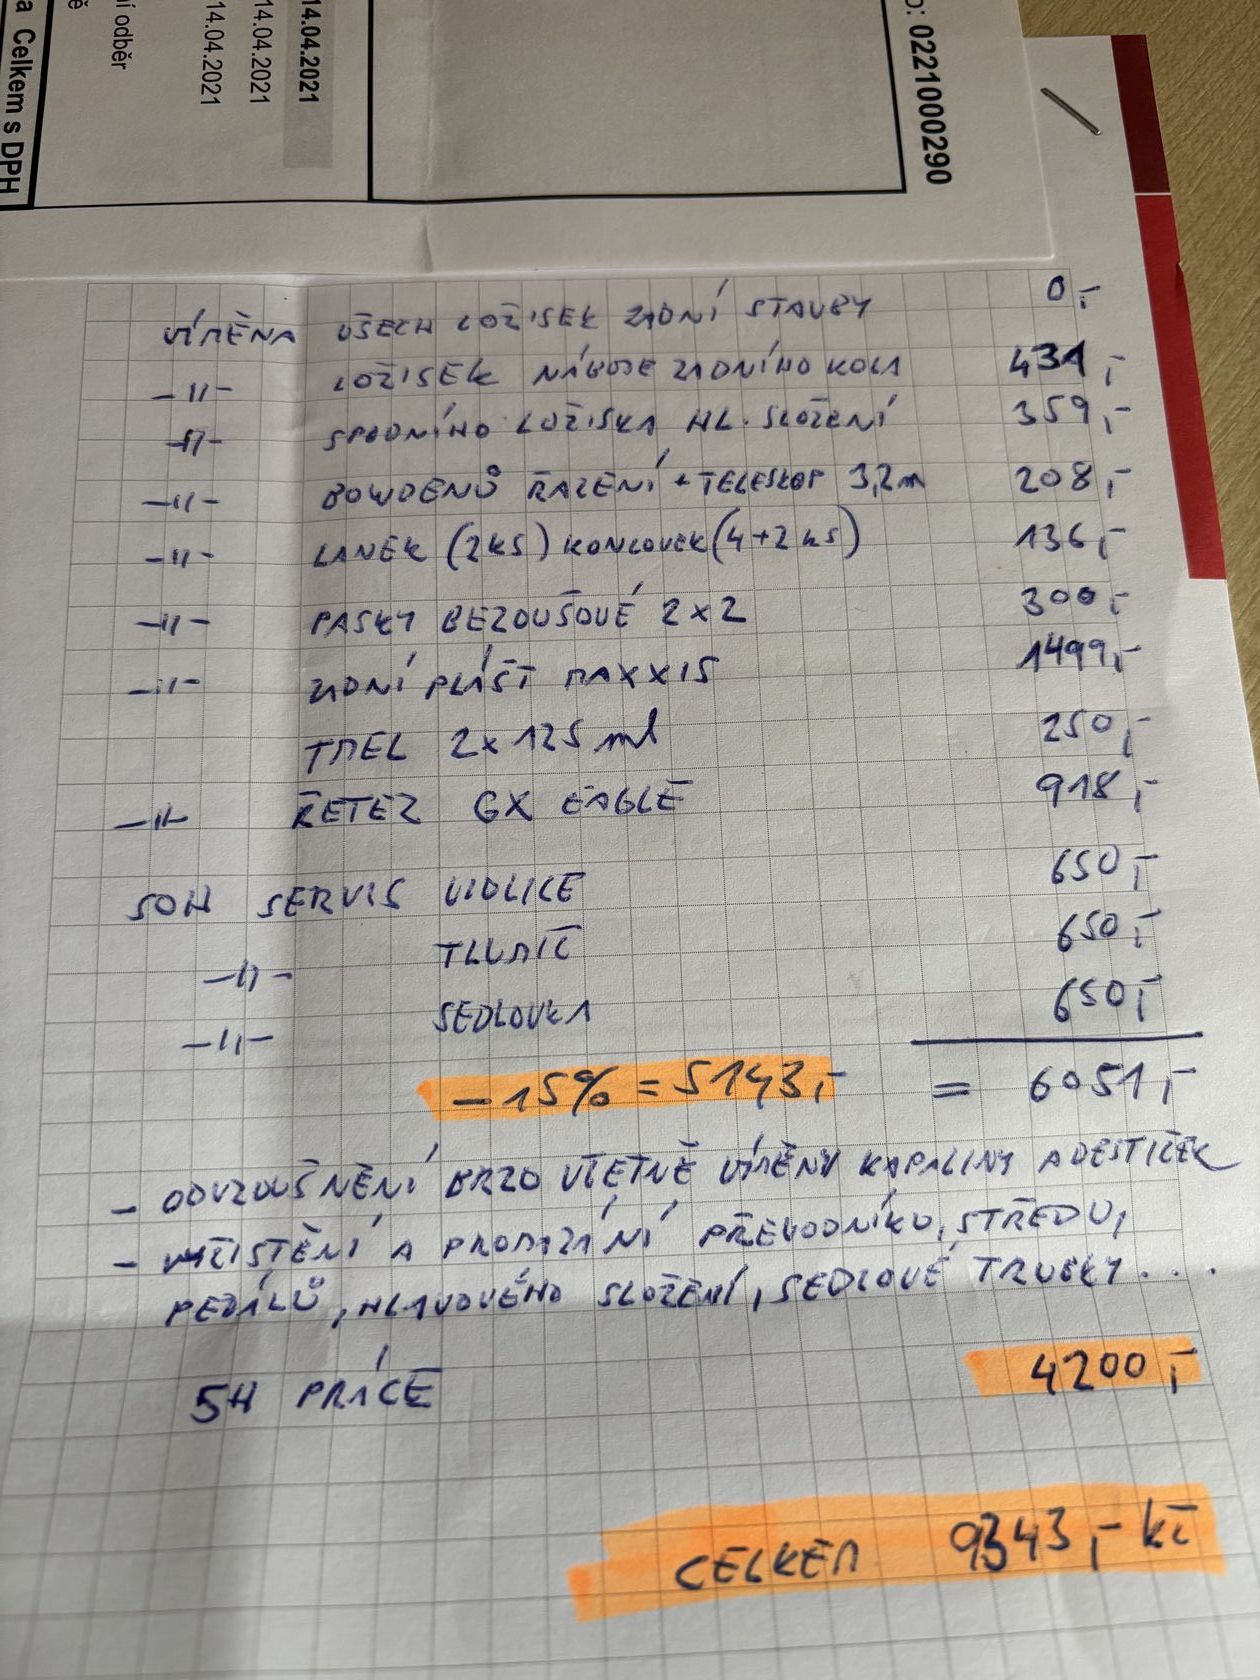 a Celkem s DPH
ě
í odběr
14.04.2021
14.04.2021
14.04.2021
o: 0221000290
VÍMĚNA VŠECH LOŽISEK ZADNÍ STAVBY 0,-
-11- LOŽISEK NÁBOJE ZADNÍHO KOLA 431,-
-11- SPODNÍHO LOŽISKA HL. SLOŽENÍ 359,-
-11- BOWDENŮ ŘAZENÍ + TELESKOP 3,2m 208,-
-11- LANEK (2KS) KONCOVEK (4+2KS) 136,-
-11- PASKY BEZDUŠOVÉ 2x2 300,-
-11- ZADNÍ PLÁŠŤ MAXXIS 1499,-
TMEL 2x125 ml 250,-
-11- ŘETĚZ GX EAGLE 918,-
50H SERVIS VIDLICE 650,-
-11- TLUMIČ 650,-
-11- SEDLOVKA 650,-
-15% = 5143,- = 6051,-
- ODVZDUŠNĚNÍ BRZD VČETNĚ VÍMĚNY KAPALINY A DESTIČEK
- VYČISTĚNÍ A PROMAZÁNÍ PŘEVODNÍKU, STŘEDU,
PEDÁLŮ, HLAVOVÉHO SLOŽENÍ, SEDLOVÉ TRUBKY...
5H PRÁCE 4200,-
CELKEM 9343,- Kč